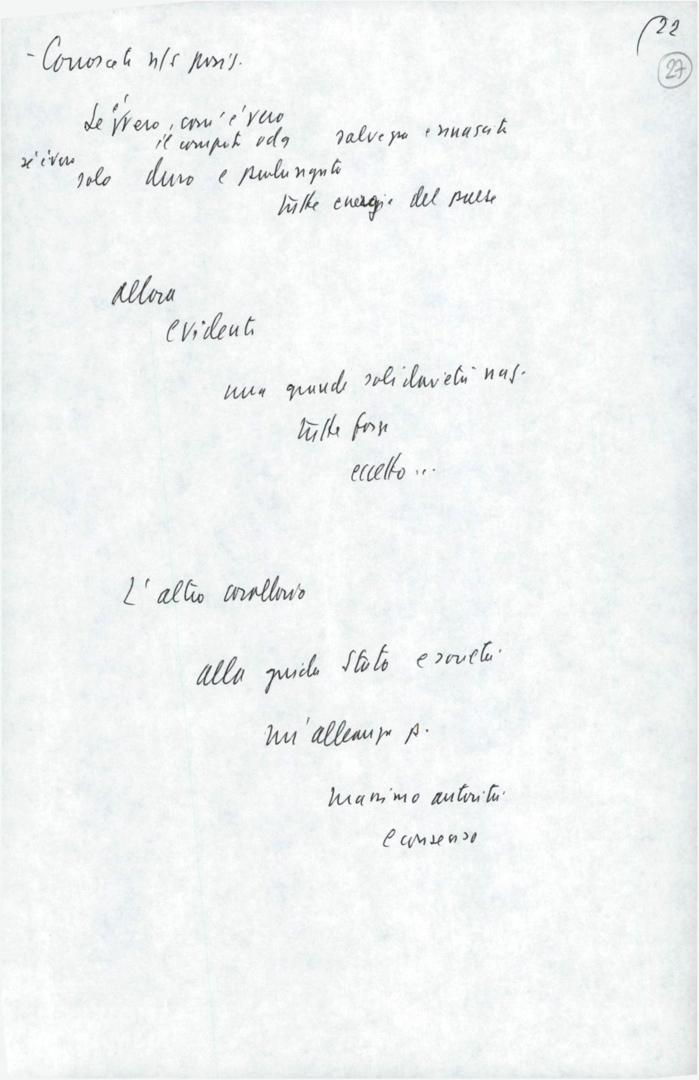 22
27
- Conoscete n/s posiz.
Se è vero, com'è vero
il compito odg salvezza e rinascita
se è vero
solo duro e prolungato
tutte energie del paese
allora
evidente
una grande solidarietà naz.
tutte forze
eccetto...
L'altro corollario
alla guida Stato e società
un'alleanza p.
massimo autorità
e consenso